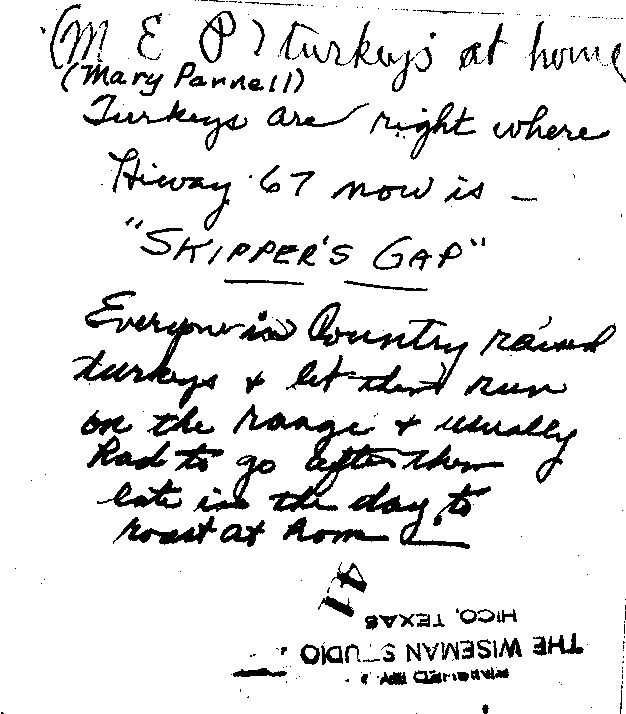 (M E P) turkeys at home
(Mary Pannell)
Turkeys are right where
Hiway 67 now is —
"SKIPPER'S GAP"
Everyone in Country raised
turkeys & let them run
on the range & usually
had to go after them
late in the day to
roost at home
41
HICO, TEXAS
THE WISEMAN STUDIO